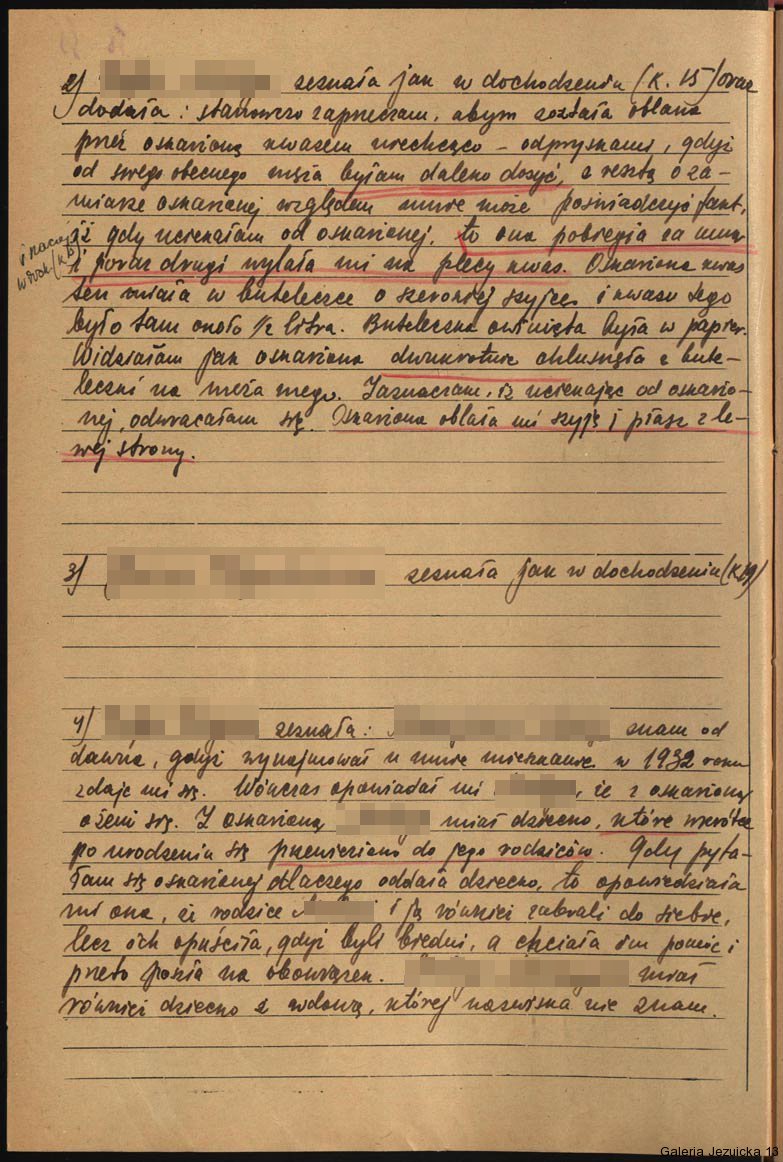 2) zeznała jak w dochodzeniu (K. 15) oraz
dodała: stanowczo zaprzeczam, abym została oblana
przez oskarżoną kwasem niechcąco – odpryskami, gdyż
od swego obecnego męża byłam daleko dosyć, z resztą o za-
miarze oskarżonej względem mnie może poświadczyć fakt,
iż gdy uciekałam od oskarżonej, to ona pobiegła za mną
i poraz drugi wylała mi na plecy kwas. Oskarżona kwas
ten miała w buteleczce o szerokiej szyjce i kwasu tego
było tam około 1/2 litra. Buteleczka owinięta była w papier.
Widziałam jak oskarżona dwukrotnie chlusnęła z bute-
leczki na męża mego. Zaznaczam, iż uciekając od oskarżo-
nej, odwracałam się. Oskarżona oblała mi szyję i płaszcz z le-
wej strony.
3) zeznała jak w dochodzeniu (K. 19)
4) zeznała: znam od
dawna, gdyż wynajmował u mnie mieszkanie w 1932 roku
zdaje mi się. Wówczas opowiadał mi , że z oskarżoną
ożeni się. Z oskarżoną miał dziecko, które wkrótce
po urodzeniu się przewieziono do jego rodziców. Gdy pyta-
łam się oskarżonej dlaczego oddała dziecko, to opowiedziała
mi ona, że rodzice i ją również zabrali do siebie,
lecz ich opuściła, gdyż byli biedni, a chciała im pomóc i
przeto poszła na obowiązek. miał
również dziecko z wdową, której nazwiska nie znam.
Galeria Jezuicka 13